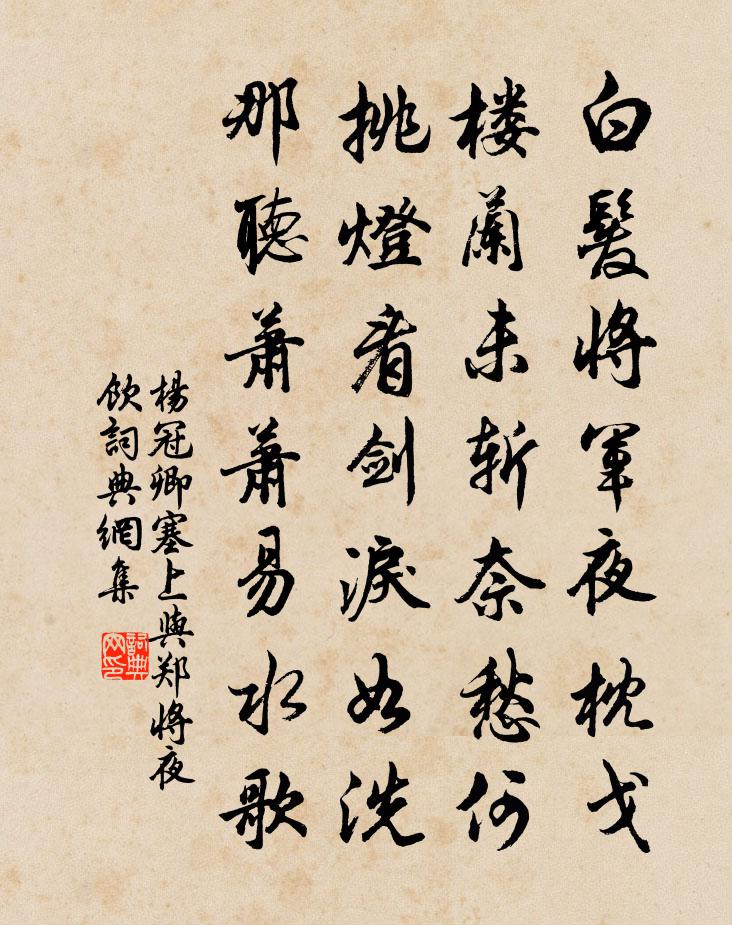 白髮將軍夜枕戈
楼蘭未斬奈愁何
挑燈看劍淚如洗
那聽蕭蕭易水歌
楊冠卿塞上與郑將夜
飲詞典網集
詞典網印